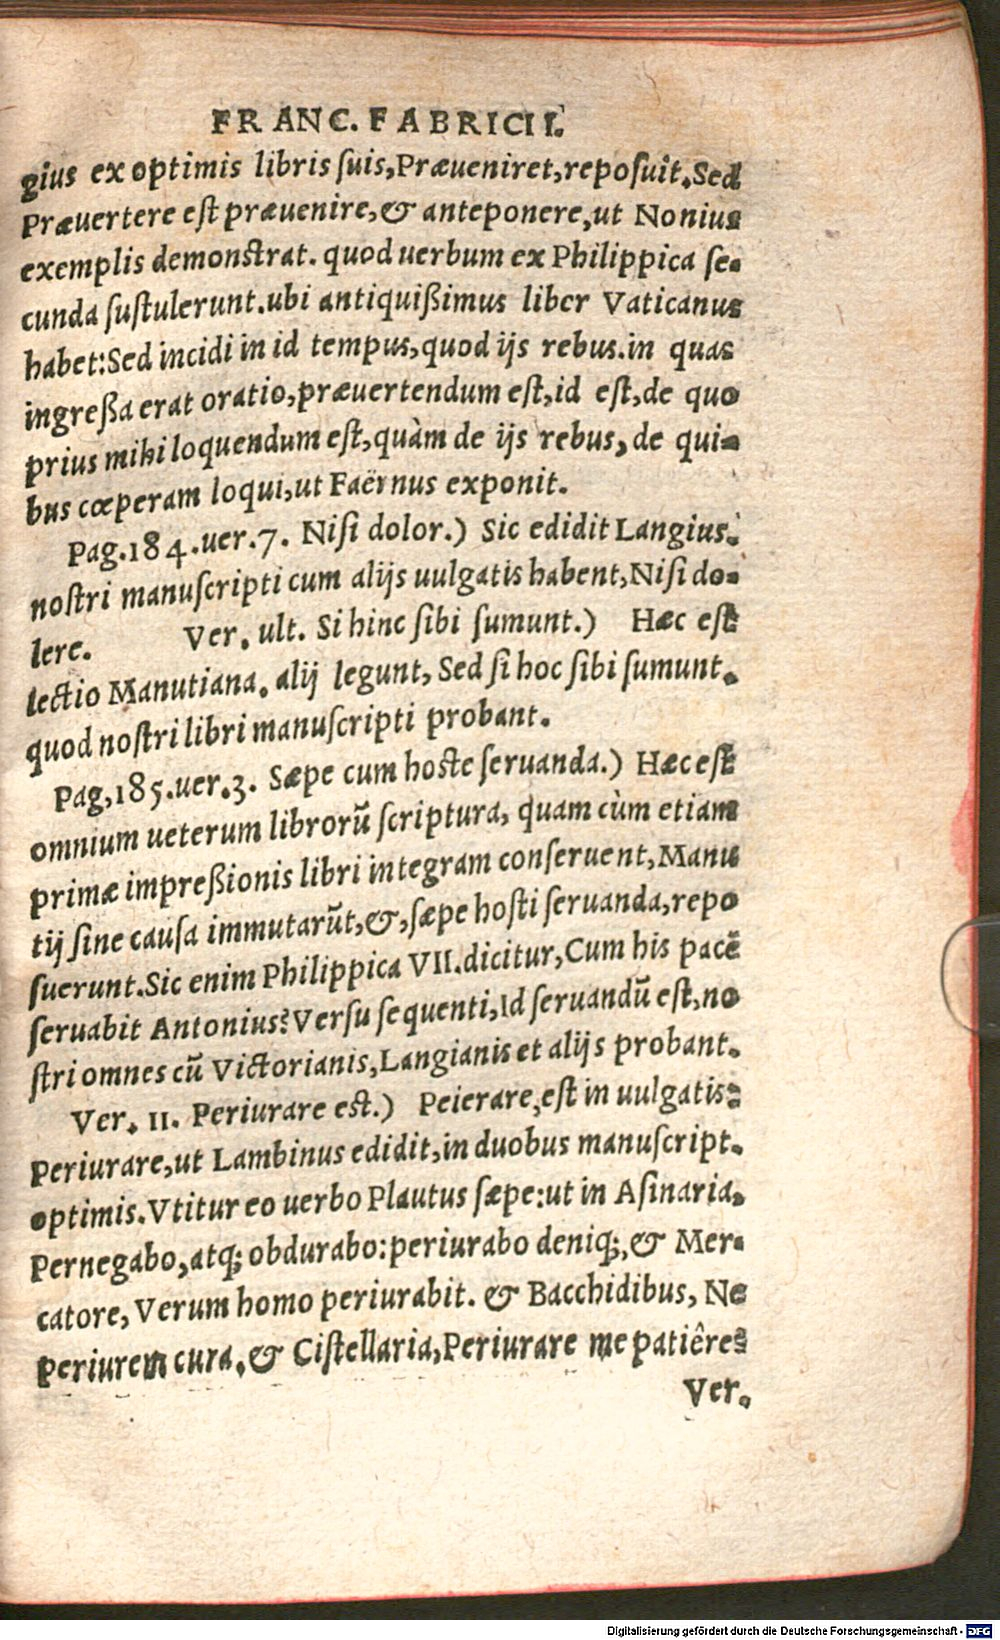 FRANC. FABRICII.
gius ex optimis libris ſuis, Præueniret, repoſuit. Sed
Præuertere eſt præuenire, & anteponere, ut Nonius
exemplis demonſtrat. quod uerbum ex Philippica ſe-
cunda ſuſtulerunt. ubi antiquißimus liber Vaticanus
habet: Sed incidi in id tempus, quod ijs rebus. in quas
ingreßa erat oratio, præuertendum eſt, id eſt, de quo
prius mihi loquendum eſt, quàm de ijs rebus, de qui-
bus cœperam loqui, ut Faërnus exponit.
Pag. 184. uer. 7. Niſi dolor.) Sic edidit Langius.
noſtri manuſcripti cum alijs uulgatis habent, Niſi do-
lere. Ver. ult. Si hinc ſibi ſumunt.) Hæc eſt
lectio Manutiana. alij legunt, Sed ſi hoc ſibi ſumunt.
quod noſtri libri manuſcripti probant.
Pag, 185. uer. 3. Sæpe cum hoſte ſeruanda.) Hæc eſt
omnium ueterum librorū ſcriptura, quam cùm etiam
primæ impreßionis libri integram conſeruent, Manu
tij ſine cauſa immutarūt, &, ſæpe hoſti ſeruanda, repo
ſuerunt. Sic enim Philippica VII. dicitur, Cum his pacē
ſeruabit Antonius? Verſu ſequenti, Id ſeruandū eſt, no
ſtri omnes cū Victorianis, Langianis et alijs probant.
Ver. 11. Periurare eſt.) Peierare, eſt in uulgatis:
Periurare, ut Lambinus edidit, in duobus manuſcript.
optimis. Vtitur eo uerbo Plautus ſæpe: ut in Aſinaria.
Pernegabo, atq; obdurabo: periurabo deniq;, & Mer-
catore, Verum homo periurabit. & Bacchidibus, Ne
periurem cura. & Ciſtellaria, Periurare me patiêres
Ver.
Digitalisierung gefördert durch die Deutsche Forschungsgemeinschaft - DFG